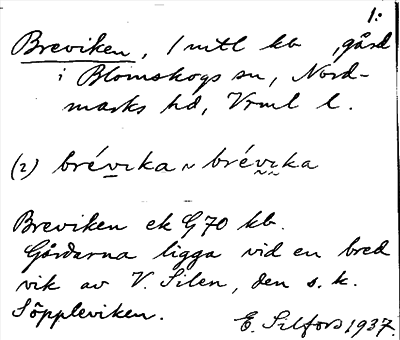 1:
Breviken, 1 mtl kb, gård
i Blomskogs sn, Nord-
marks hd, Vrml l.
(2) brévika ~ brévika
Breviken ek G70 kb.
Gårdarna ligga vid en bred
vik av V. Silen, den s. k.
Söppleviken.
E. Silfors 1937.